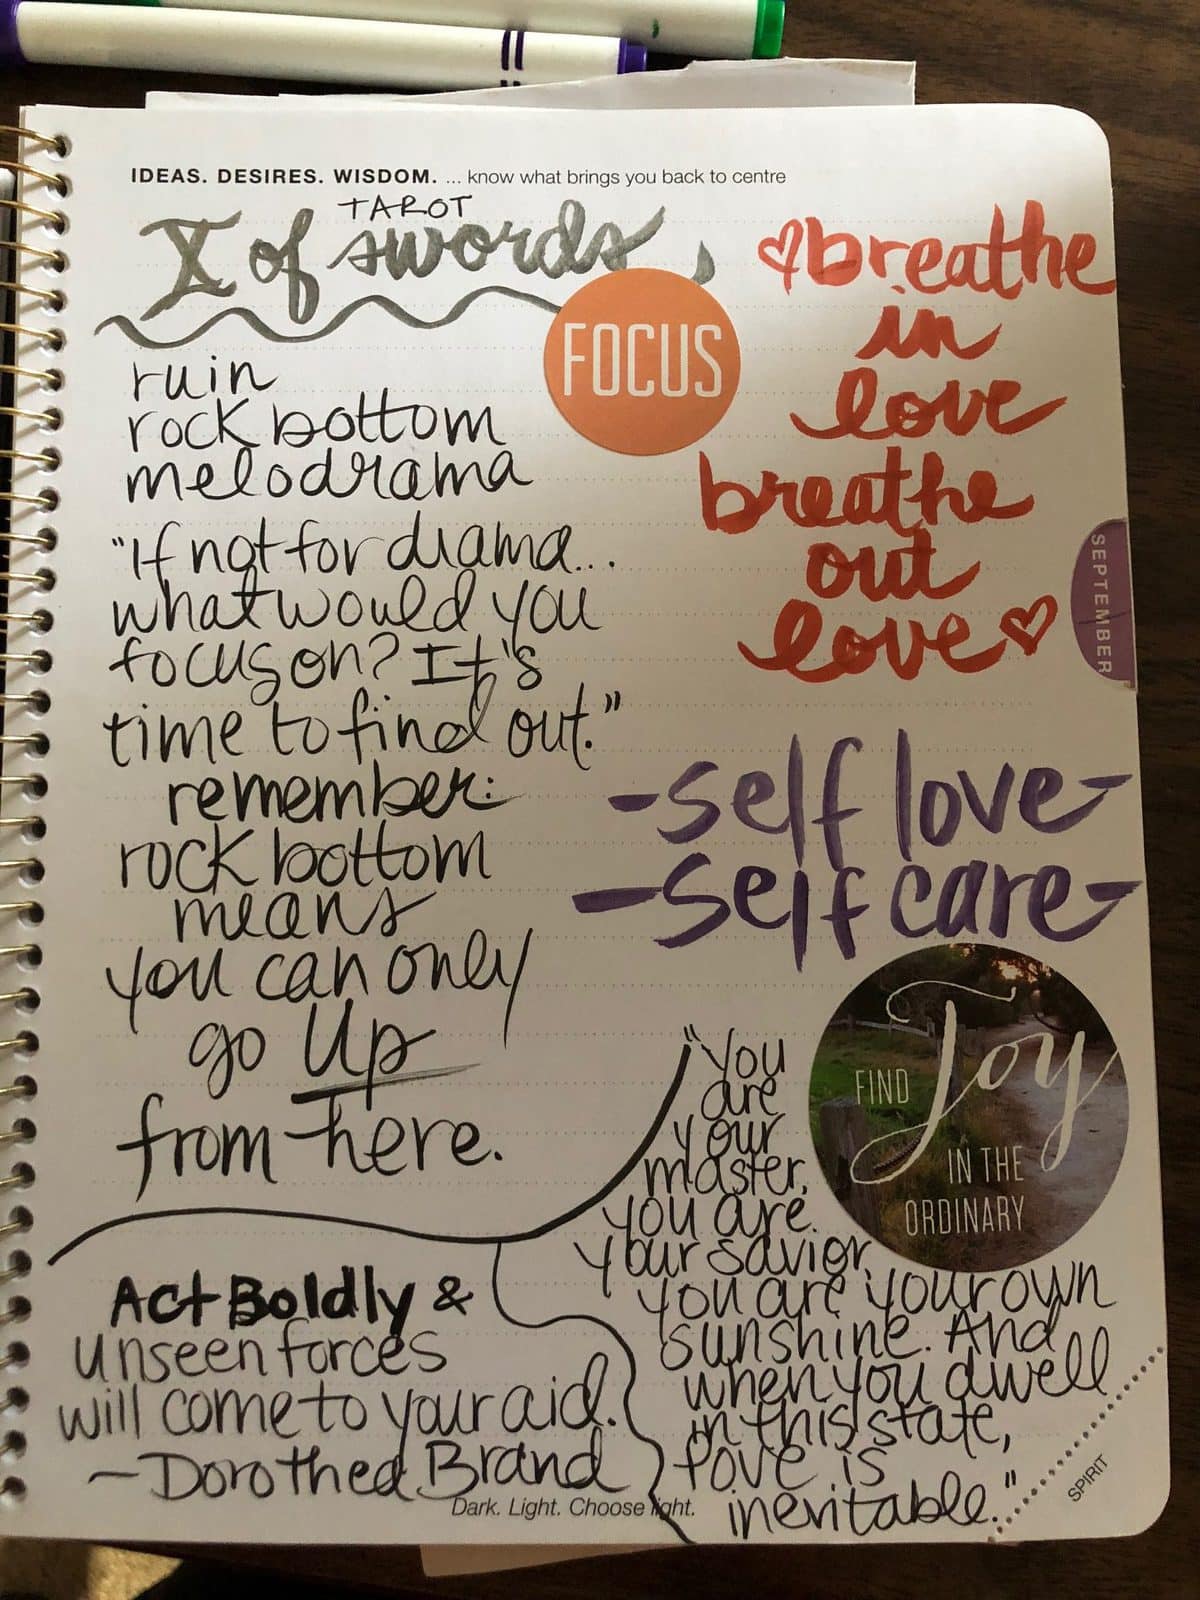 IDEAS. DESIRES. WISDOM. ... know what brings you back to centre
TAROT
X of swords
FOCUS
ruin
rock bottom
melodrama
"If not for drama...
what would you
focus on? It's
time to find out."
remember:
rock bottom
means
you can only
go Up
from here.
♡breathe
in
love
breathe
out
love♡
SEPTEMBER
-self love-
-self care-
FIND Joy
IN THE
ORDINARY
"You
are
your
master,
you are
your savior,
you are your own
sunshine. And
when you dwell
in this state,
love is
inevitable."
Act Boldly &
unseen forces
will come to your aid.
~Dorothea Brand
Dark. Light. Choose light.
SPIRIT